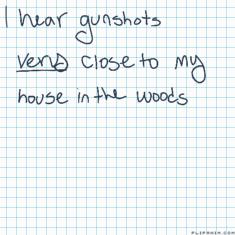 I hear gunshots
very close to my
house in the woods
FLIPANIM.COM